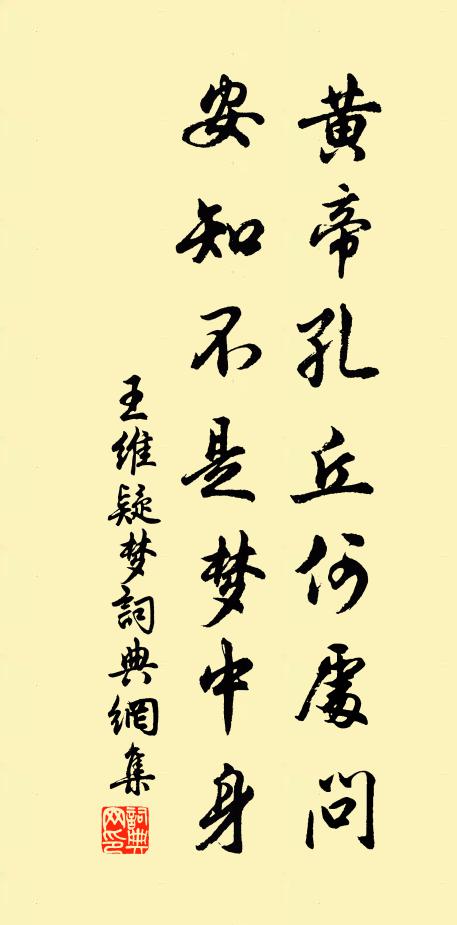 黄帝孔丘何處问
安知不是梦中身
王維疑梦詞典網集
詞典网印